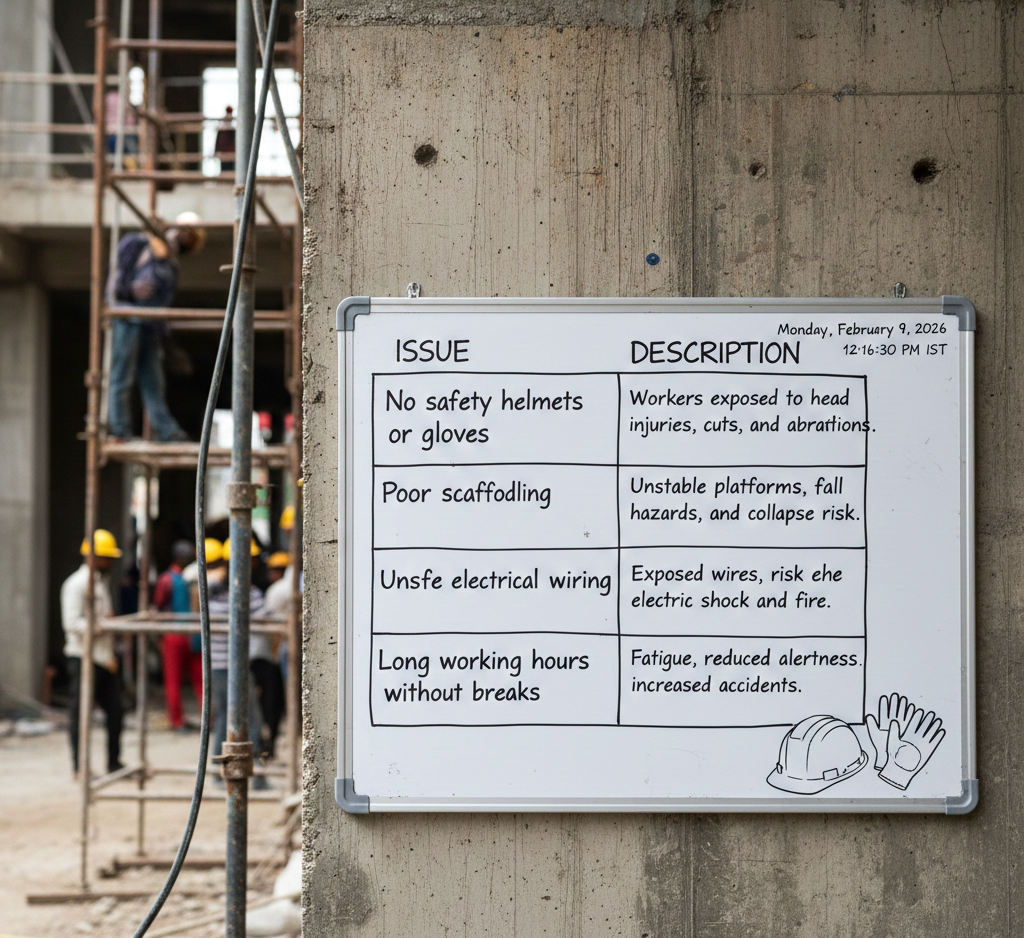 Monday, February 9, 2026
12:16:30 PM IST
ISSUE DESCRIPTION
No safety helmets
or gloves
Workers exposed to head
injuries, cuts, and abrartions.
Poor scaffodling
Unstable platforms, fall
hazards, and collapse risk.
Unsfe electrical wiring
Exposed wires, risk ehe
electric shock and fire.
Long working hours
without breaks
Fatigue, reduced alertness.
increased accidents.